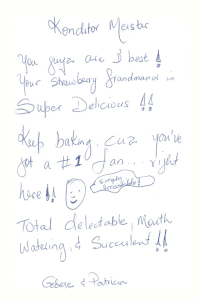 Konditor Meister
You guys are D best!
Your Strawberry Grandmanai is
Super Delicious!!
Keep baking, cuz you've
got a #1 fan... right
here!!
Simply
Irresistable!
Total delectable, Mouth
Watering, & Succulent!!
& Patricia